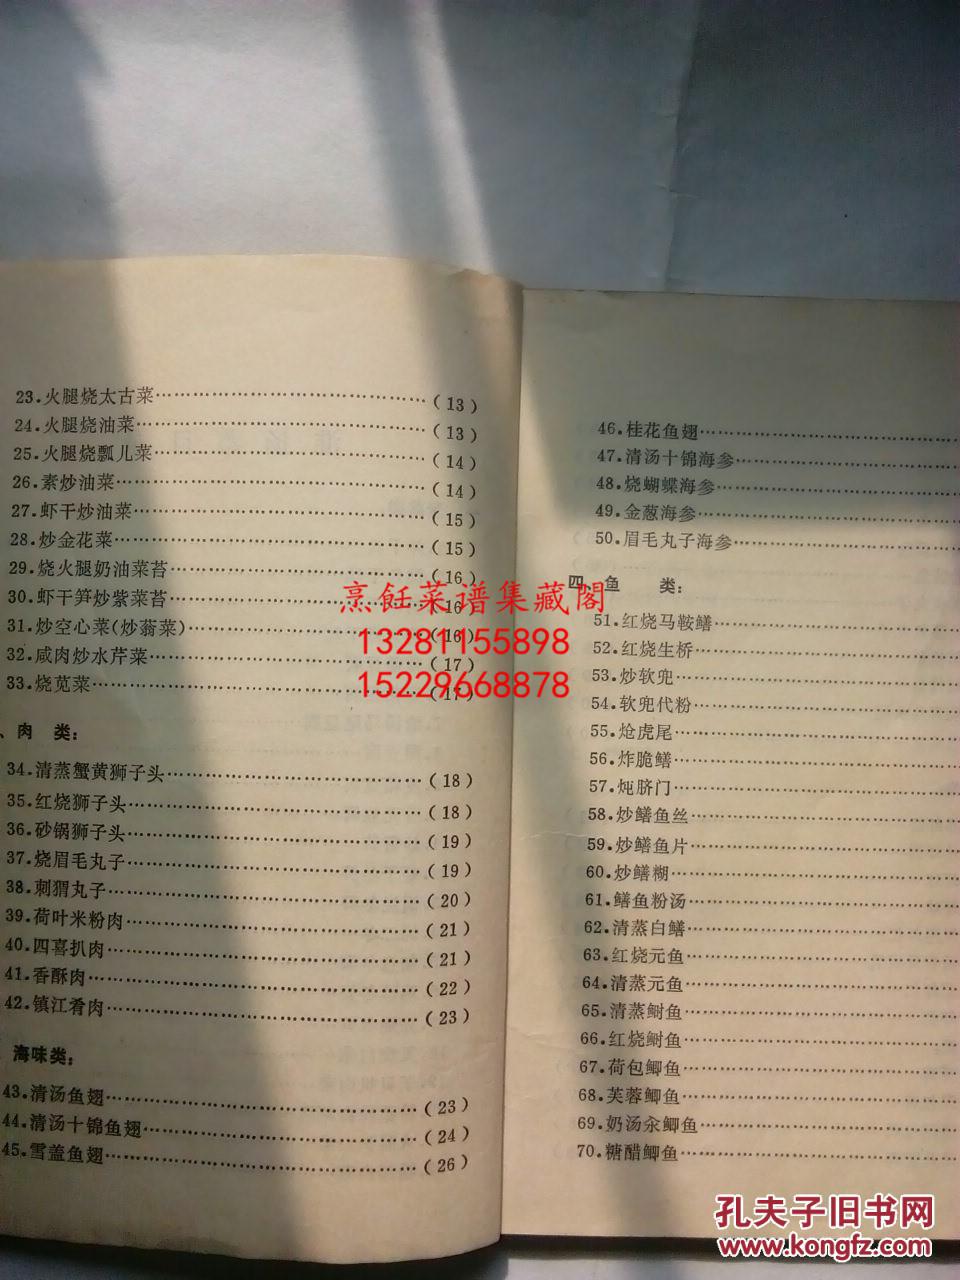 23.火腿烧太古菜……(13)
24.火腿烧油菜……(13)
25.火腿烧瓢儿菜……(14)
26.素炒油菜……(14)
27.虾干炒油菜……(15)
28.炒金花菜……(15)
29.烧火腿奶油菜苔……(16)
30.虾干笋炒紫菜苔……(16)
31.炒空心菜(炒蓊菜)……(16)
32.咸肉炒水芹菜……(17)
33.烧苋菜……(17)
、肉 类:
34.清蒸蟹黄狮子头……(18)
35.红烧狮子头……(18)
36.砂锅狮子头……(19)
37.烧眉毛丸子……(19)
38.刺猬丸子……(20)
39.荷叶米粉肉……(21)
40.四喜扒肉……(21)
41.香酥肉……(22)
42.镇江肴肉……(23)
海味类:
43.清汤鱼翅……(23)
44.清汤十锦鱼翅……(24)
45.雪盖鱼翅……(26)
46.桂花鱼翅……
47.清汤十锦海参……
48.烧蝴蝶海参……
49.金葱海参……
50.眉毛丸子海参……
四、鱼 类:
51.红烧马鞍鳝……
52.红烧生桥……
53.炒软兜……
54.软兜代粉……
55.炝虎尾……
56.炸脆鳝……
57.炖脐门……
58.炒鳝鱼丝……
59.炒鳝鱼片……
60.炒鳝糊……
61.鳝鱼粉汤……
62.清蒸白鳝……
63.红烧元鱼……
64.清蒸元鱼……
65.清蒸鲥鱼……
66.红烧鲥鱼……
67.荷包鲫鱼……
68.芙蓉鲫鱼……
69.奶汤汆鲫鱼……
70.糖醋鲫鱼……
烹飪菜谱集藏閣
13281155898
15229668878
孔夫子旧书网
www.kongfz.com